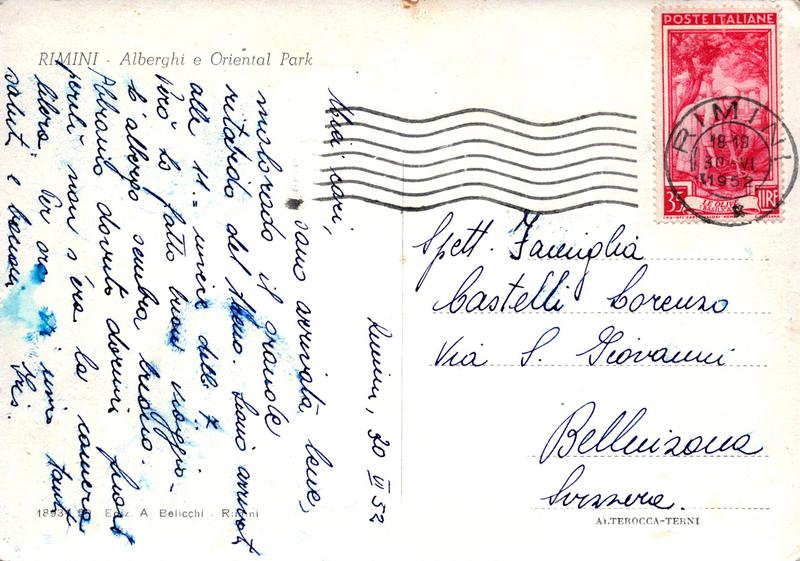 RIMINI - Alberghi e Oriental Park
POSTE ITALIANE
RIMINI
18-19
30 VI
1952
LE OLIVE
35 LIRE
Rimini, 30 VI 52
Miei cari,
sono arrivata bene,
malgrado il grande
ritardo del treno. Siamo arrivati
alle 11 - invece delle 7
Però ho fatto buon viaggio -
L'albergo sembra buono.
Abbiamo dovuto dormir fuori
perché non c'era la camera
libera. Per ora vi invio tanti
saluti e bacioni
Iris.
Spett. Famiglia
Castelli Lorenzo
Via S. Giovanni
Bellinzona
Svizzera.
Ediz. A. Belicchi - Rimini
ALTEROCCA-TERNI